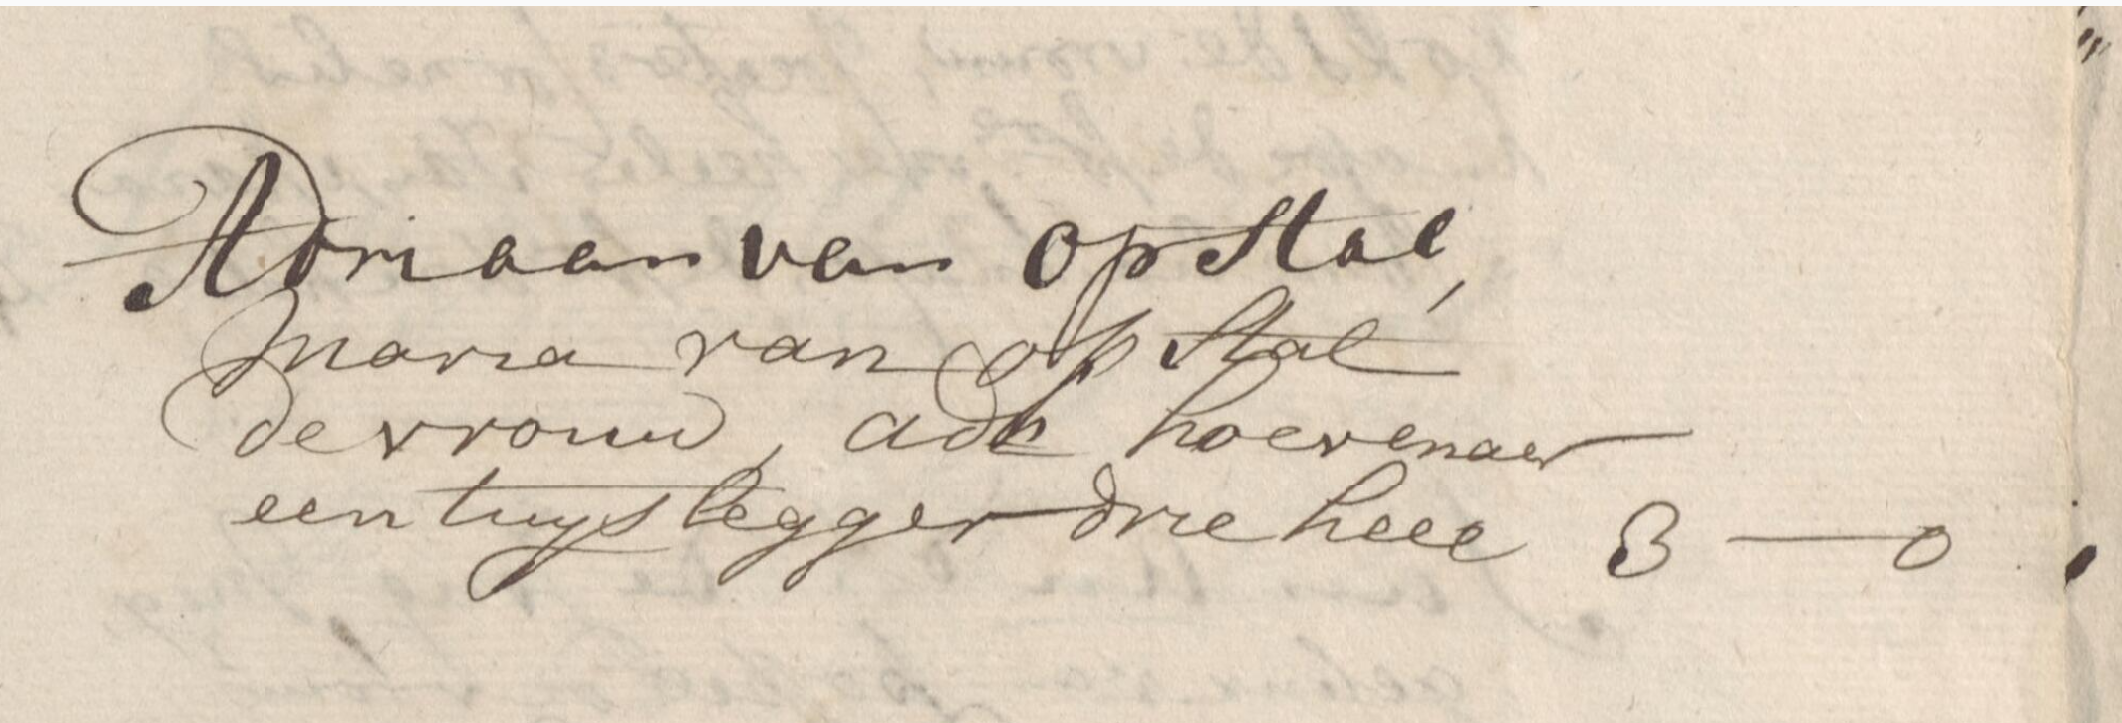 Adriaan van op Stal,
Maria van op Stal
de vrouw, adr hoevenaer
een tuys legger drie heel 3 — 0